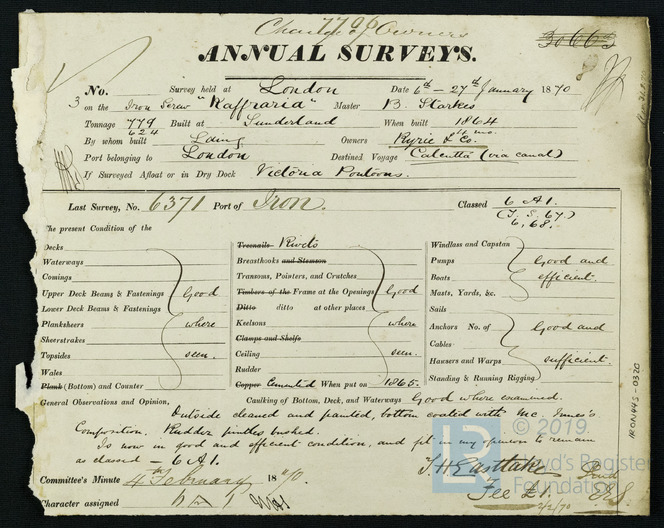 7796
Change of Owners
30663
ANNUAL SURVEYS.
No. Survey held at London Date 6th – 27th January 1870
3 on the Iron Screw "Kaffraria" Master B. Starkes
Tonnage 779 Built at Sunderland When built 1864
624 4 mo.
By whom built Laing Owners Ryrie & Co.
Port belonging to London Destined Voyage Calcutta (via canal)
If Surveyed Afloat or in Dry Dock Victoria Pontoons.
Last Survey, No. 6371 Port of Iron. Classed 6 A1.
6,68.
The present Condition of the
Decks
Waterways
Comings
Upper Deck Beams & Fastenings Good
Lower Deck Beams & Fastenings
Planksheers where
Sheerstrakes
Topsides seen.
Wales
Plank (Bottom) and Counter
Treenails Rivets
Breasthooks and Stemson
Transoms, Pointers, and Crutches
Timbers of the Frame at the Openings Good
Ditto ditto at other places
Keelsons where
Clamps and Shelfs
Ceiling seen.
Rudder
Copper Cemented When put on 1865.
Windlass and Capstan
Pumps Good and
Boats efficient.
Masts, Yards, &c.
Sails
Anchors No. of Good and
Cables
Hawsers and Warps sufficient.
Standing & Running Rigging
General Observations and Opinion, Caulking of Bottom, Deck, and Waterways Good where examined.
Outside cleaned and painted, bottom coated with Mc. Innes's
Composition. Rudder pintles bushed.
Is now in good and efficient condition, and fit in my opinion to remain
as classed – 6 A1.
T. H. Eastlake
Fee £1.
2/2/70
Committee's Minute 4th February 1870
Character assigned A 1
IRON445-0320
© 2019.
Lloyd's Register
Foundation